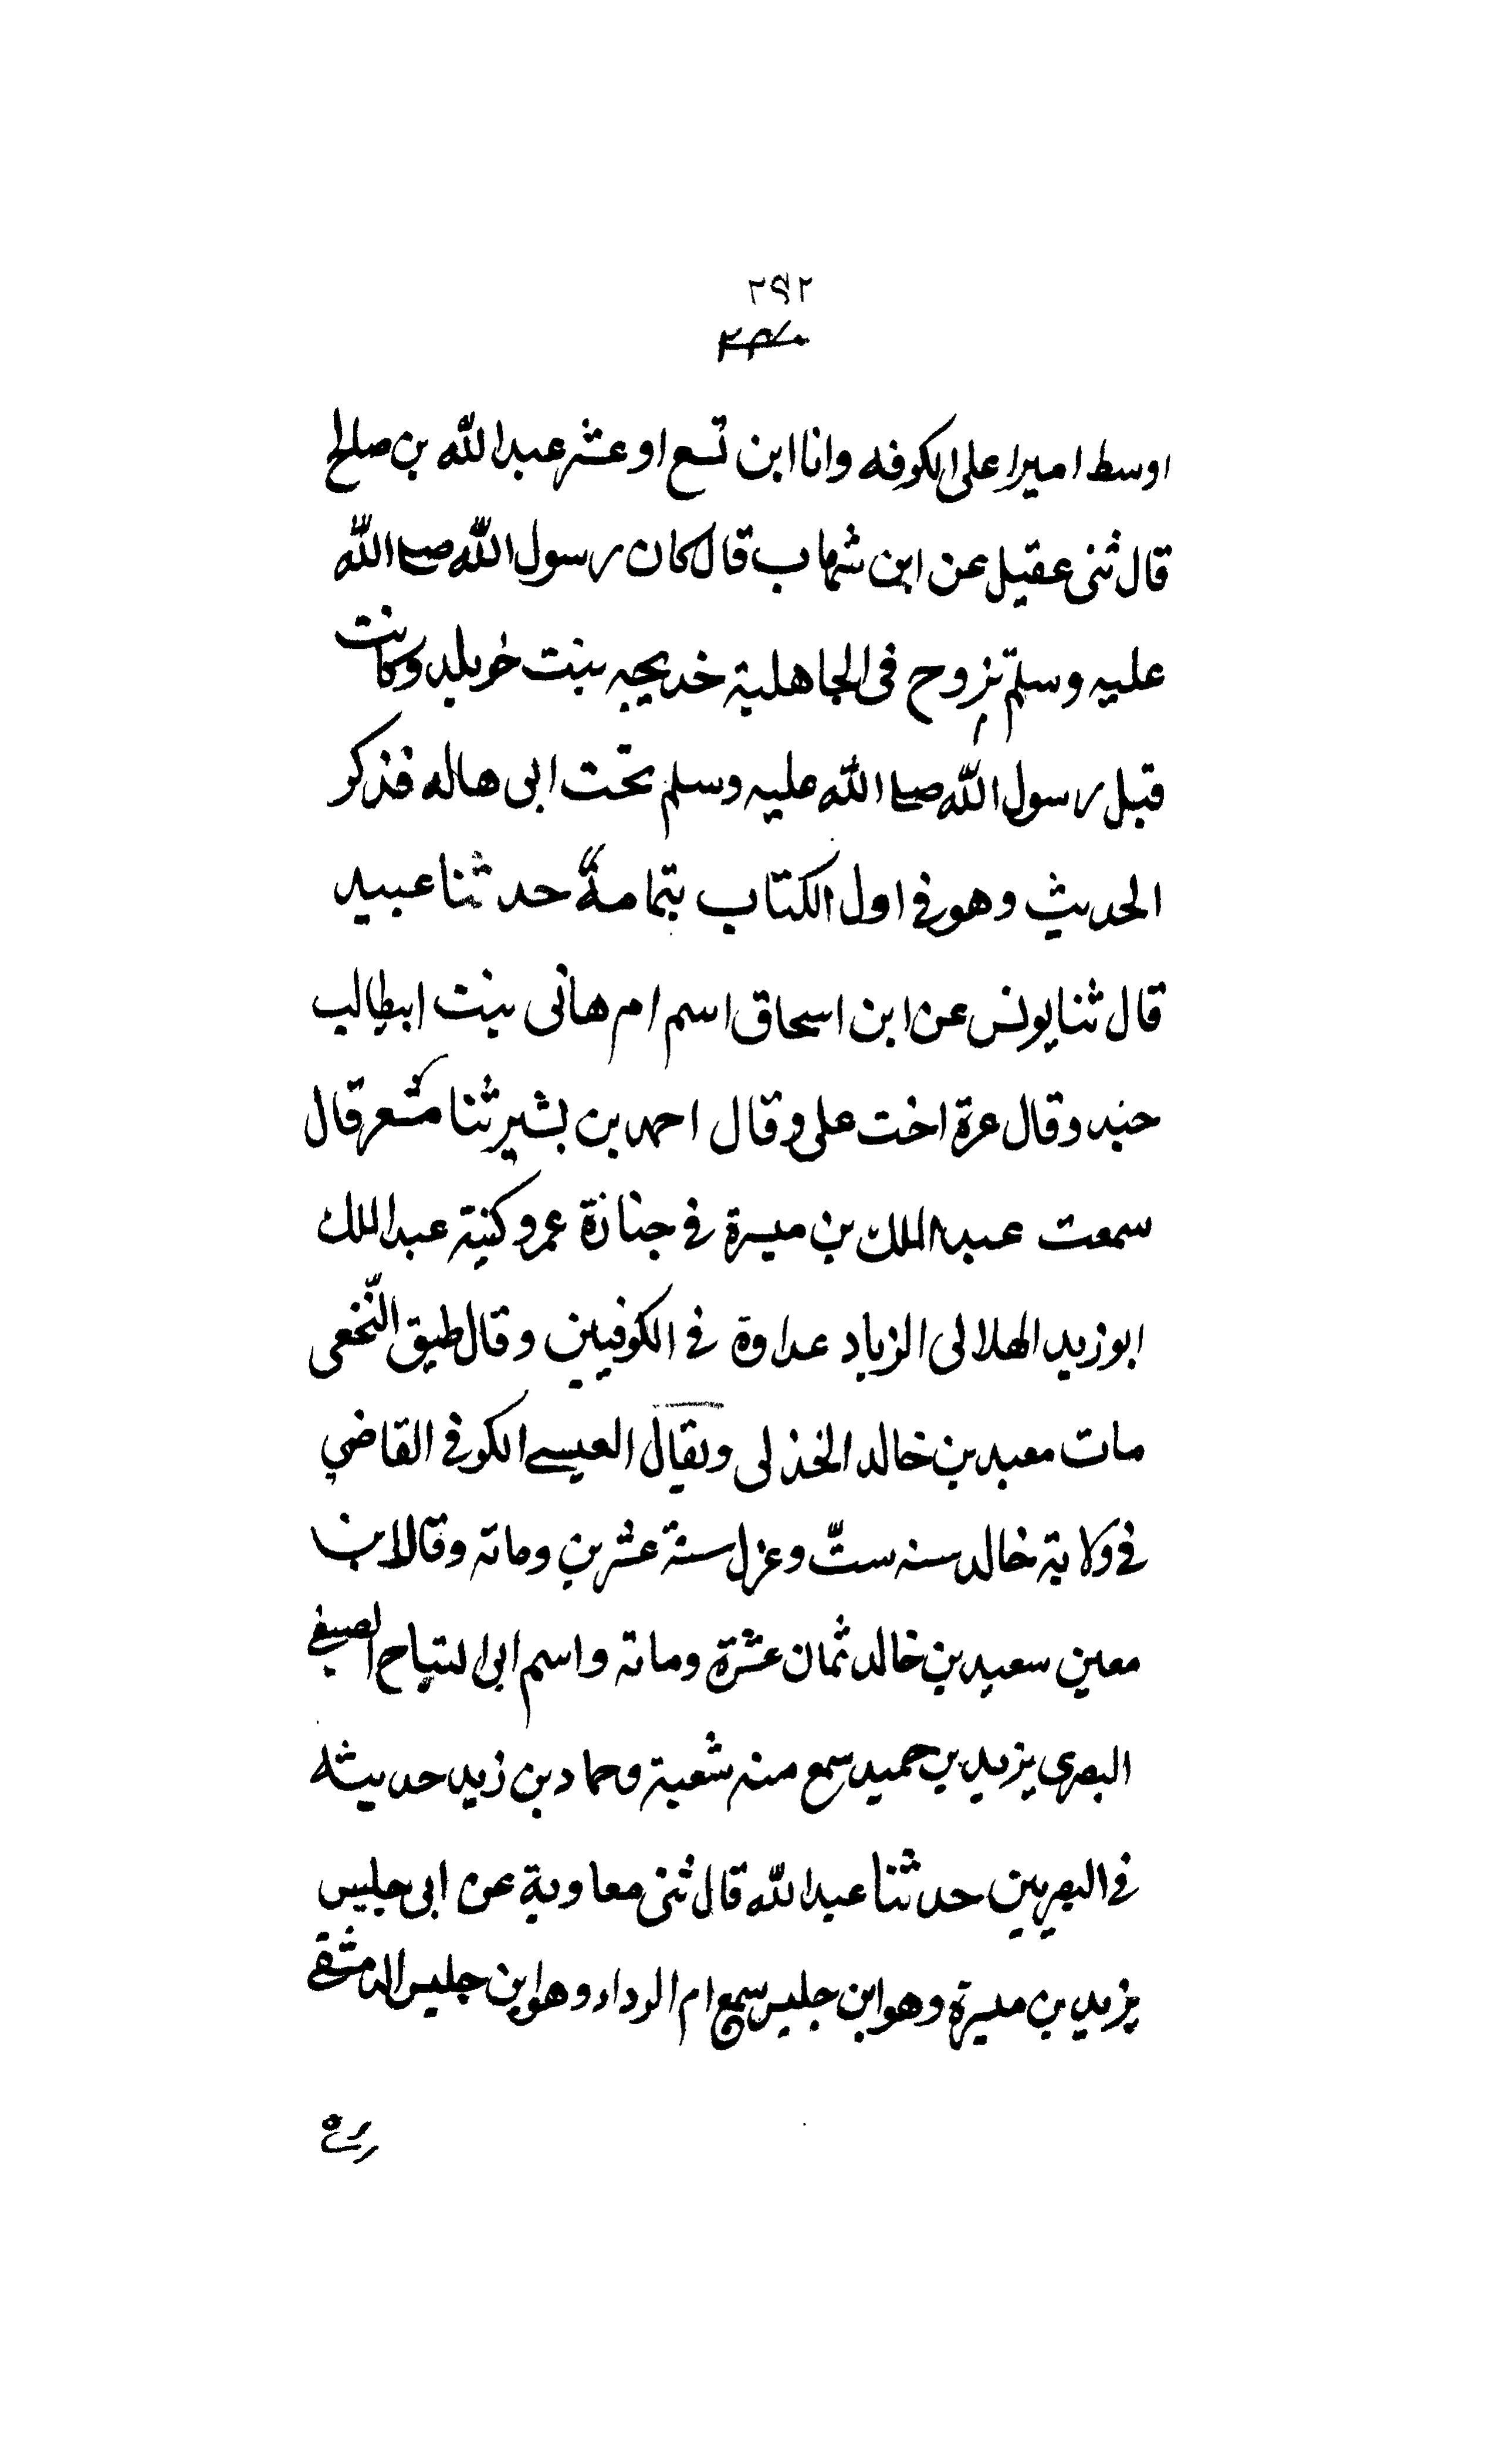 ٢٩٢
اوسط اميرا على الكوفه وانا ابن تسع او عشر عبد الله بن صالح
قال ثنى عقيل عن ابن شهاب قال كان رسول الله صلى الله
عليه وسلم تزوج فى الجاهلية خديجه بنت خويلد وكانت
قبل رسول الله صلى الله عليه وسلم تحت ابى هاله فذكر
الحديث وهو في اول الكتاب بتمامة حدثنا عبيد
قال ثنا يونس عن ابن اسحاق اسم ام هانى بنت ابيطالب
هند وقال عرة اخت على وقال احمد بن بشير ثنا مسعر قال
سمعت عبد الملك بن ميسرة في جنازة عمرو كنية عبد الملك
ابو زيد الهلالى الزياد عداوة في الكوفيين وقال طبق النّخعى
مات معبد بن خالد الخذلى ويقال العيسى الكوفي القاضي
في ولاية خالد سنه ستّ وعزل سنة عشرين ومائة وقال ابن
معين سعيد بن خالد ثمان عشرة ومائة واسم ابى التياح الضبعي
البصرى يزيد بن حميد سمع منه شعبة وحماد بن زيد حديثه
في البصريين حدثنا عبد الله قال ثنى معاوية عن ابى حليس
يزيد بن ميسرة وهو ابن حليس سمع ام الدرداء وهو ابن حليس الدمشقي